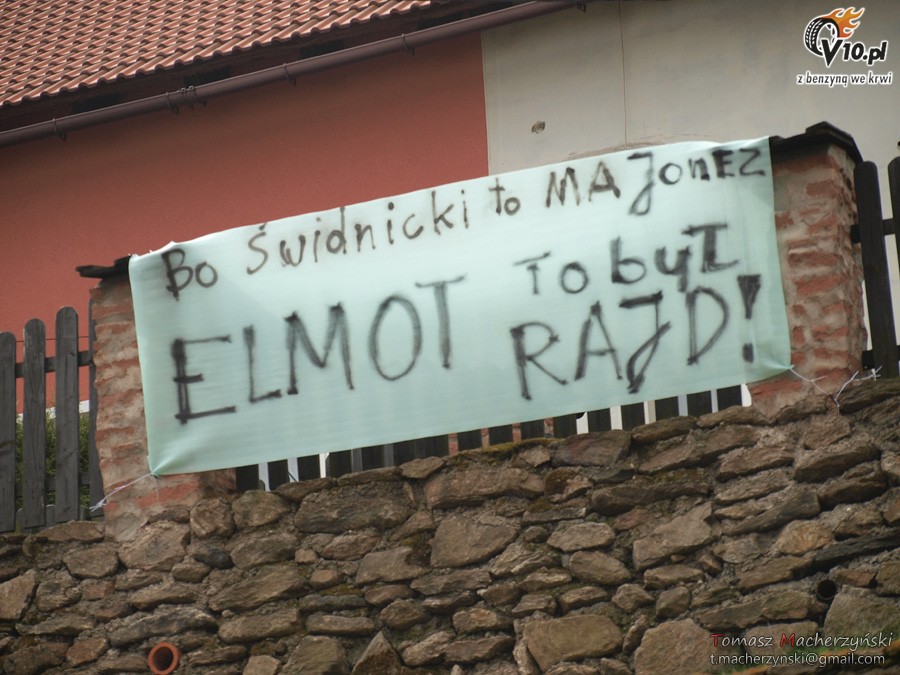 V10.pl
z benzyną we krwi
Bo świdnicki to MAJonEZ
ELMOT To był RAJD!
Tomasz Macherzyński
t.macherzynski@gmail.com